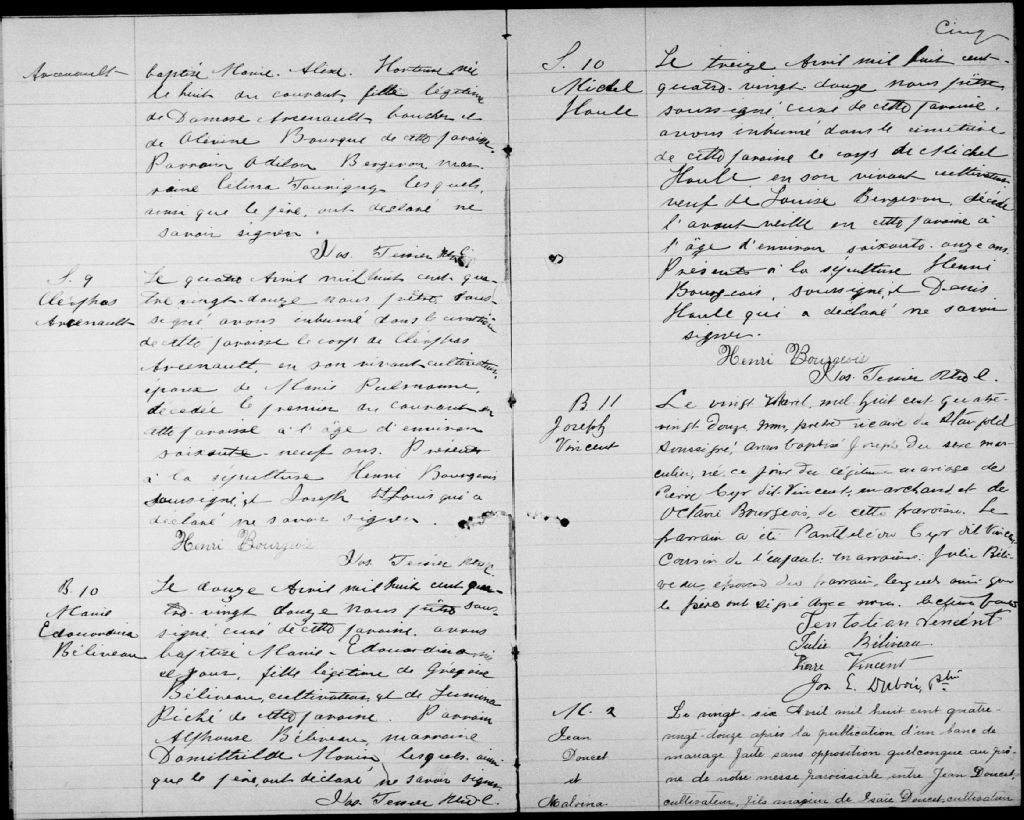 Arcenault
baptisé Marie. Alexe. Hortense née
le huit du courant, fille légitime
de Damase Arcenault boucher et
de Olévine Bourque de cette paroisse.
Parrain Adilon Bergeron mar-
raine Celina Tourigny lesquels,
ainsi que le père, ont déclaré ne
savoir signer.
Jos. Tessier Ptre C.
S. 9
Cléophas
Arcenault
Le quatre Avril mil huit cent qua-
tre vingt-douze nous prêtre sous-
signé avons inhumé dans le cimetière
de cette paroisse le corps de Cléophas
Arcenault, en son vivant cultivateur,
époux de Marie
décédé le premier du courant en
cette paroisse à l'âge d'environ
soixante neuf ans. Présents
à la sépulture Henri Bourgeois
soussigné, et Joseph St Louis qui a
déclaré ne savoir signer.
Henri Bourgeois
Jos. Tessier Ptre C.
B. 10
Marie
Edouardina
Béliveau
Le douze Avril mil huit cent qua-
tre-vingt douze nous prêtre sous-
signé curé de cette paroisse, avons
baptisé Marie-Edouardina née
ce jour, fille légitime de Grégoire
Béliveau, cultivateur, et de Lumina
Piché de cette paroisse. Parrain
Alphonse Béliveau, marraine
Domithilde Morin lesquels, ainsi
que le père, ont déclaré ne savoir signer.
Jos. Tessier Ptre C.
Cinq
S. 10
Michel
Houle
Le treize Avril mil huit cent
quatre-vingt-douze nous prêtre
soussigné, curé de cette paroisse,
avons inhumé dans le cimetière
de cette paroisse le corps de Michel
Houle en son vivant cultivateur
veuf de Louise Bergeron, décédé
l'avant veille en cette paroisse à
l'âge d'environ soixante-onze ans.
Présents à la sépulture Henri
Bourgeois, soussigné, et Denis
Houle qui a déclaré ne savoir
signer.
Henri Bourgeois
Jos. Tessier Ptre C.
B 11
Joseph
Vincent
Le vingt Avril, mil huit cent quatre-
vingt douze, nous, prêtre vicaire de Stanfold
soussigné, avons baptisé Joseph du sexe mas-
culin, né ce jour du légitime mariage de
Pierre Cyr dit Vincent, marchand, et de
Octavie Bourgeois, de cette paroisse. Le
parrain a été Cyr dit Vincent
Cousin de l'enfant: marraine: Julie Béli-
veau, épouse du parrain, lesquels ainsi que
le père ont signé avec nous. lecture faite
Vincent
Julie Béliveau
Pierre Vincent
Jos E. Dubois, Ptre
M. 2
Jean
Doucet
et
Malvina
Le vingt-six Avril mil huit cent quatre-
vingt-douze après la publication d'un banc de
mariage faite sans opposition quelconque au prô-
ne de notre messe paroissiale entre Jean Doucet,
cultivateur, fils majeur de Isaïe Doucet, cultivateur